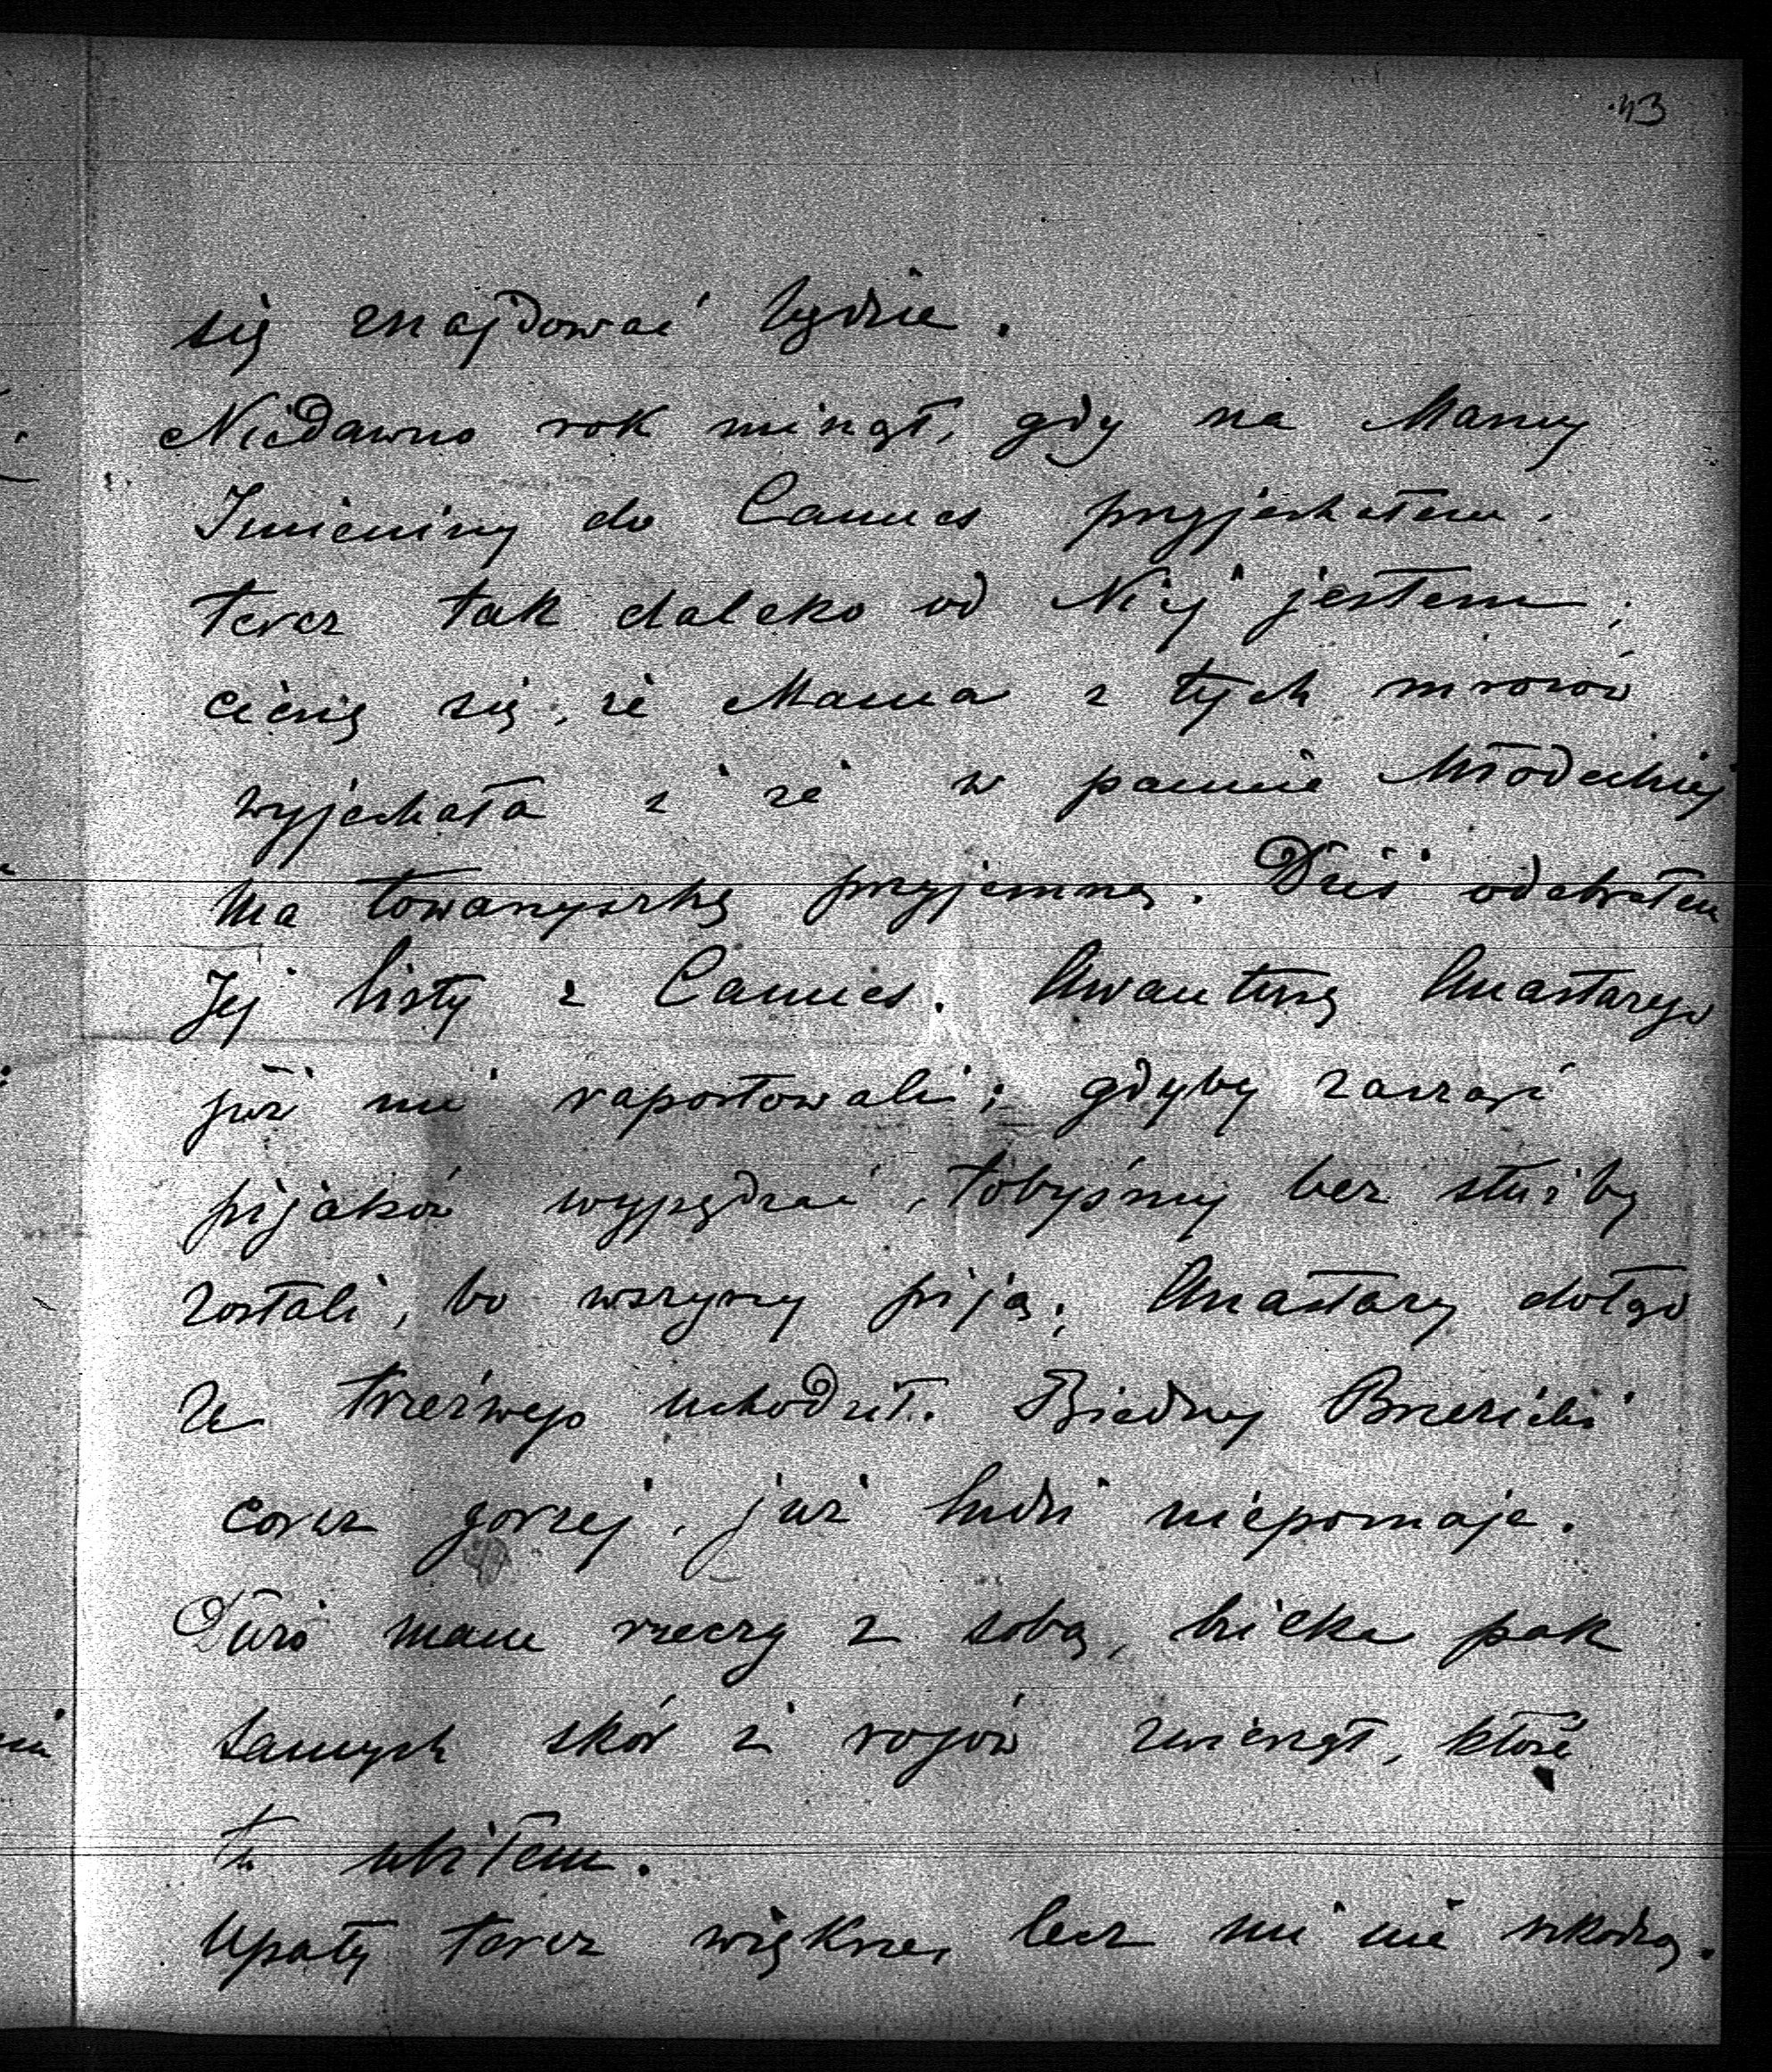 43
się znajdować będzie.
Niedawno rok minął, gdy na Mamy
Imieniny do Cannes przyjechałem,
teraz tak daleko od Niej jestem;
cieszę się, że Mama z tych mrozów
wyjechała i że w pannie Młodeckiej
ma towarzyszkę przyjemną. Dziś odebrałem
Jej listy z Cannes. Awanturę Anastazego
już mi raportowali; gdyby zacząć
pijaków wypędzać, tobyśmy bez służby
zostali, bo wszyscy piją; Anastazy dotąd
za trzeźwego uchodził. Biedny Brzezicki
coraz gorzej, już ludzi niepoznaje.
Dużo mam rzeczy z sobą, kilka pak
samych skór i rogów zwierząt, które
tu ubiłem.
Upały teraz większe, lecz mi nie szkodzą.